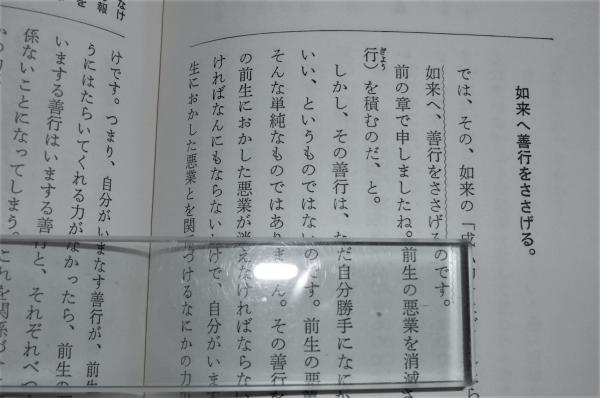 如来へ善行をささげる。
では、その、如来の「成
如来へ、善行をささげるのです。
前の章で申しましたね。前生の悪業を消滅さ
行）を積むのだ、と。
しかし、その善行は、ただ自分勝手になにか
いい、というものではないのです。前生の悪業
そんな単純なものではありません。その善行を
の前生におかした悪業が消えなければならない
ければなんにもならないわけで、自分がいま
生におかした悪業とを関係づけるなにかの力が
けです。つまり、自分がいまなす善行が、前生
うにはたらいてくれる力がなかったら、前生の悪
いまする善行はいまする善行と、それぞれべつ
係ないことになってしまう。これを関係が